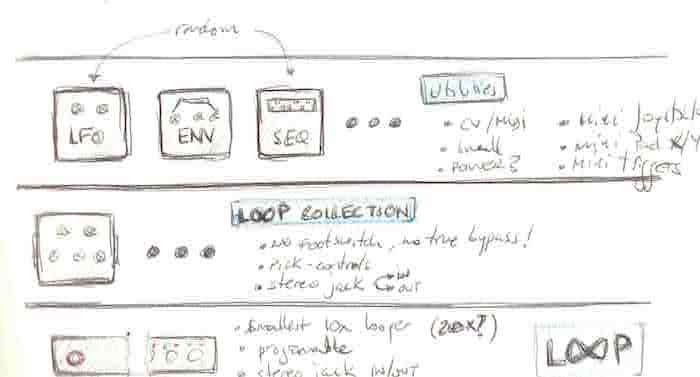 random
Utilities
LFO ENV SEQ
• CV/Midi
• Small
• Power?
• Mini Joystick
• Mini Pad X/Y
• Mini triggers
LOOP COLLECTION
• No Footswitch, no true bypass!
• Pick-controls
• stereo jack in out
• Smallest 10x looper (20x?)
• programmable
• stereo jack IN/OUT
LOOP